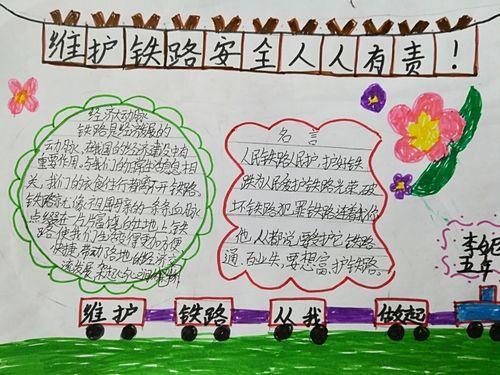 维护铁路安全人人有责！
经济大动脉
铁路是经济发展的
大动脉，在我国的经济建设中有
重要作用，与我们的日常生活息息相
关。我们的衣食住行都离不开铁路。
铁路就像祖国母亲的一条条血脉
点缀在一片片富饶的土地上。铁
路使我们生活得更加方便
快捷，带动了各地的经济
名言
人民铁路人民护，护好铁
路为人民爱护铁路光荣，破
坏铁路犯罪铁路连着你
他，人都说要爱护它铁路
通，百业兴，要想富，护铁路。
李
五年
维护 铁路 从我 做起